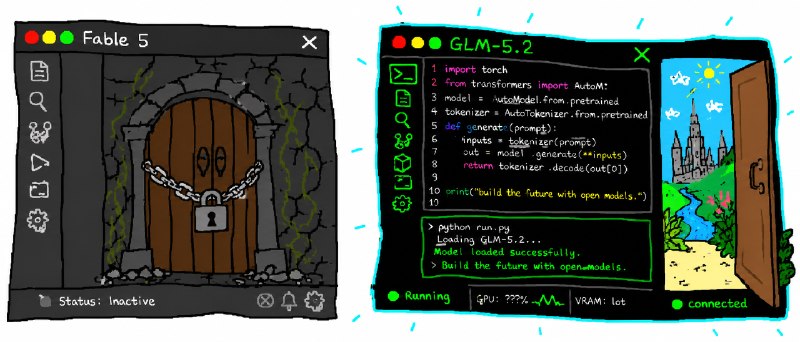 Fable 5
Status: Inactive
GLM-5.2
1 import torch
2 from transformers import AutoM:
3 model = AutoModel.from.pretrained
4 tokenizer = AutoTokenizer.from.pretrained
5 def generate(prompt):
6 inputs = tokenizer(prompt)
7 out = model.generate(**inputs)
8 return tokenizer.decode(out[0])
10 print("build the future with open models.")
19
> python run.py
Loading GLM-5.2...
Model loaded successfully.
> Build the future with open-models.
Running
GPU: ???%
VRAM: lot
connected